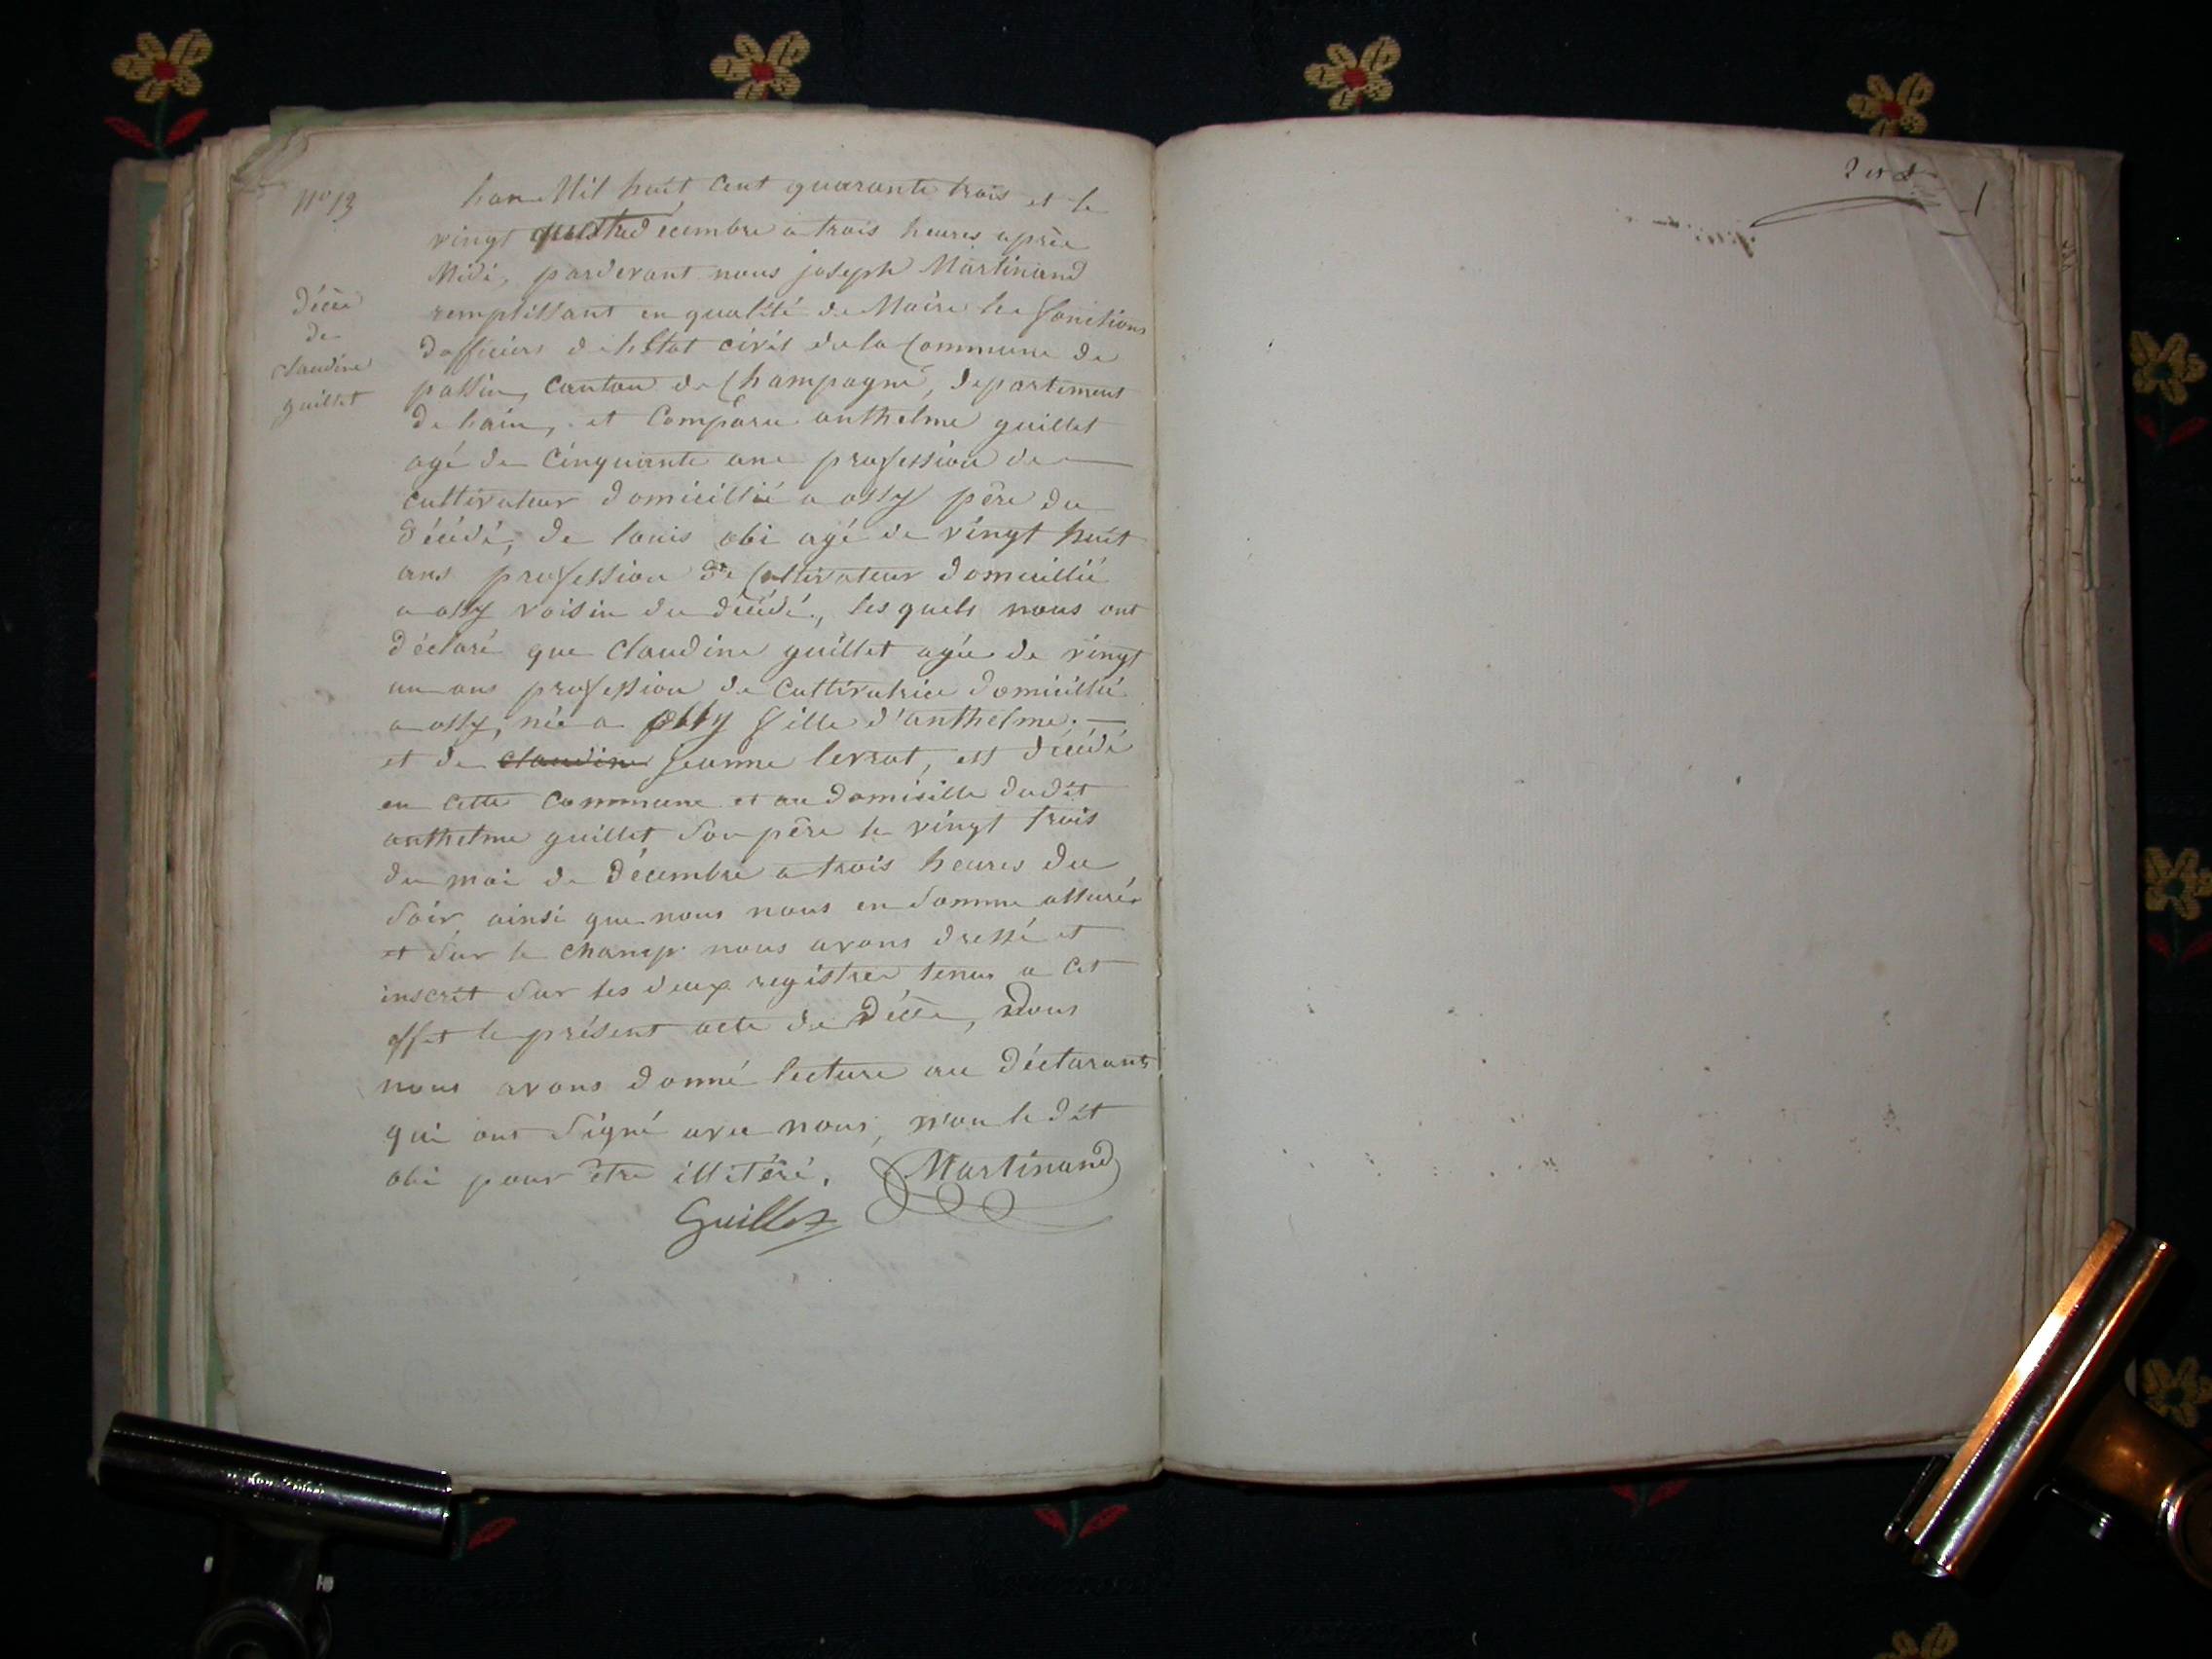 n° 13
décès
de
claudine
guillet
lan Mil huit cent quarante trois et le
vingt quatre decembre a trois heures après
Midi, pardevant nous joseph Martinand
remplissant en qualité de Maire les fonctions
dofficiers de létat civil de la Commune de
passin, Canton de Champagne, departement
de lain, est Comparu anthelme guillet
agé de cinquante ans profession de
cultivateur domicillié a ossy père du
décédé, de louis obi agé de vingt huit
ans profession de Cultivateur domicillié
a ossy voisin du décédé, les quels nous ont
déclaré que claudine guillet agée de vingt
un ans profession de cultivatrice domicillié
a ossy, née a ossy fille d'anthelme.
et de claudine jeanne levrat, est décédé
en cette Commune et au domicille dudit
anthelme guillet son père le vingt trois
du moi de décembre a trois heures du
soir ainsi que nous nous en somme assurés
et sur le champ nous avons dressé et
inscrit sur les deux registres tenus a cet
effet le présent acte de décès, dont
nous avons donné lecture au déclarants
qui ont signé avec nous, non le dit
obi pour être illitéré.
Martinand
Guillet